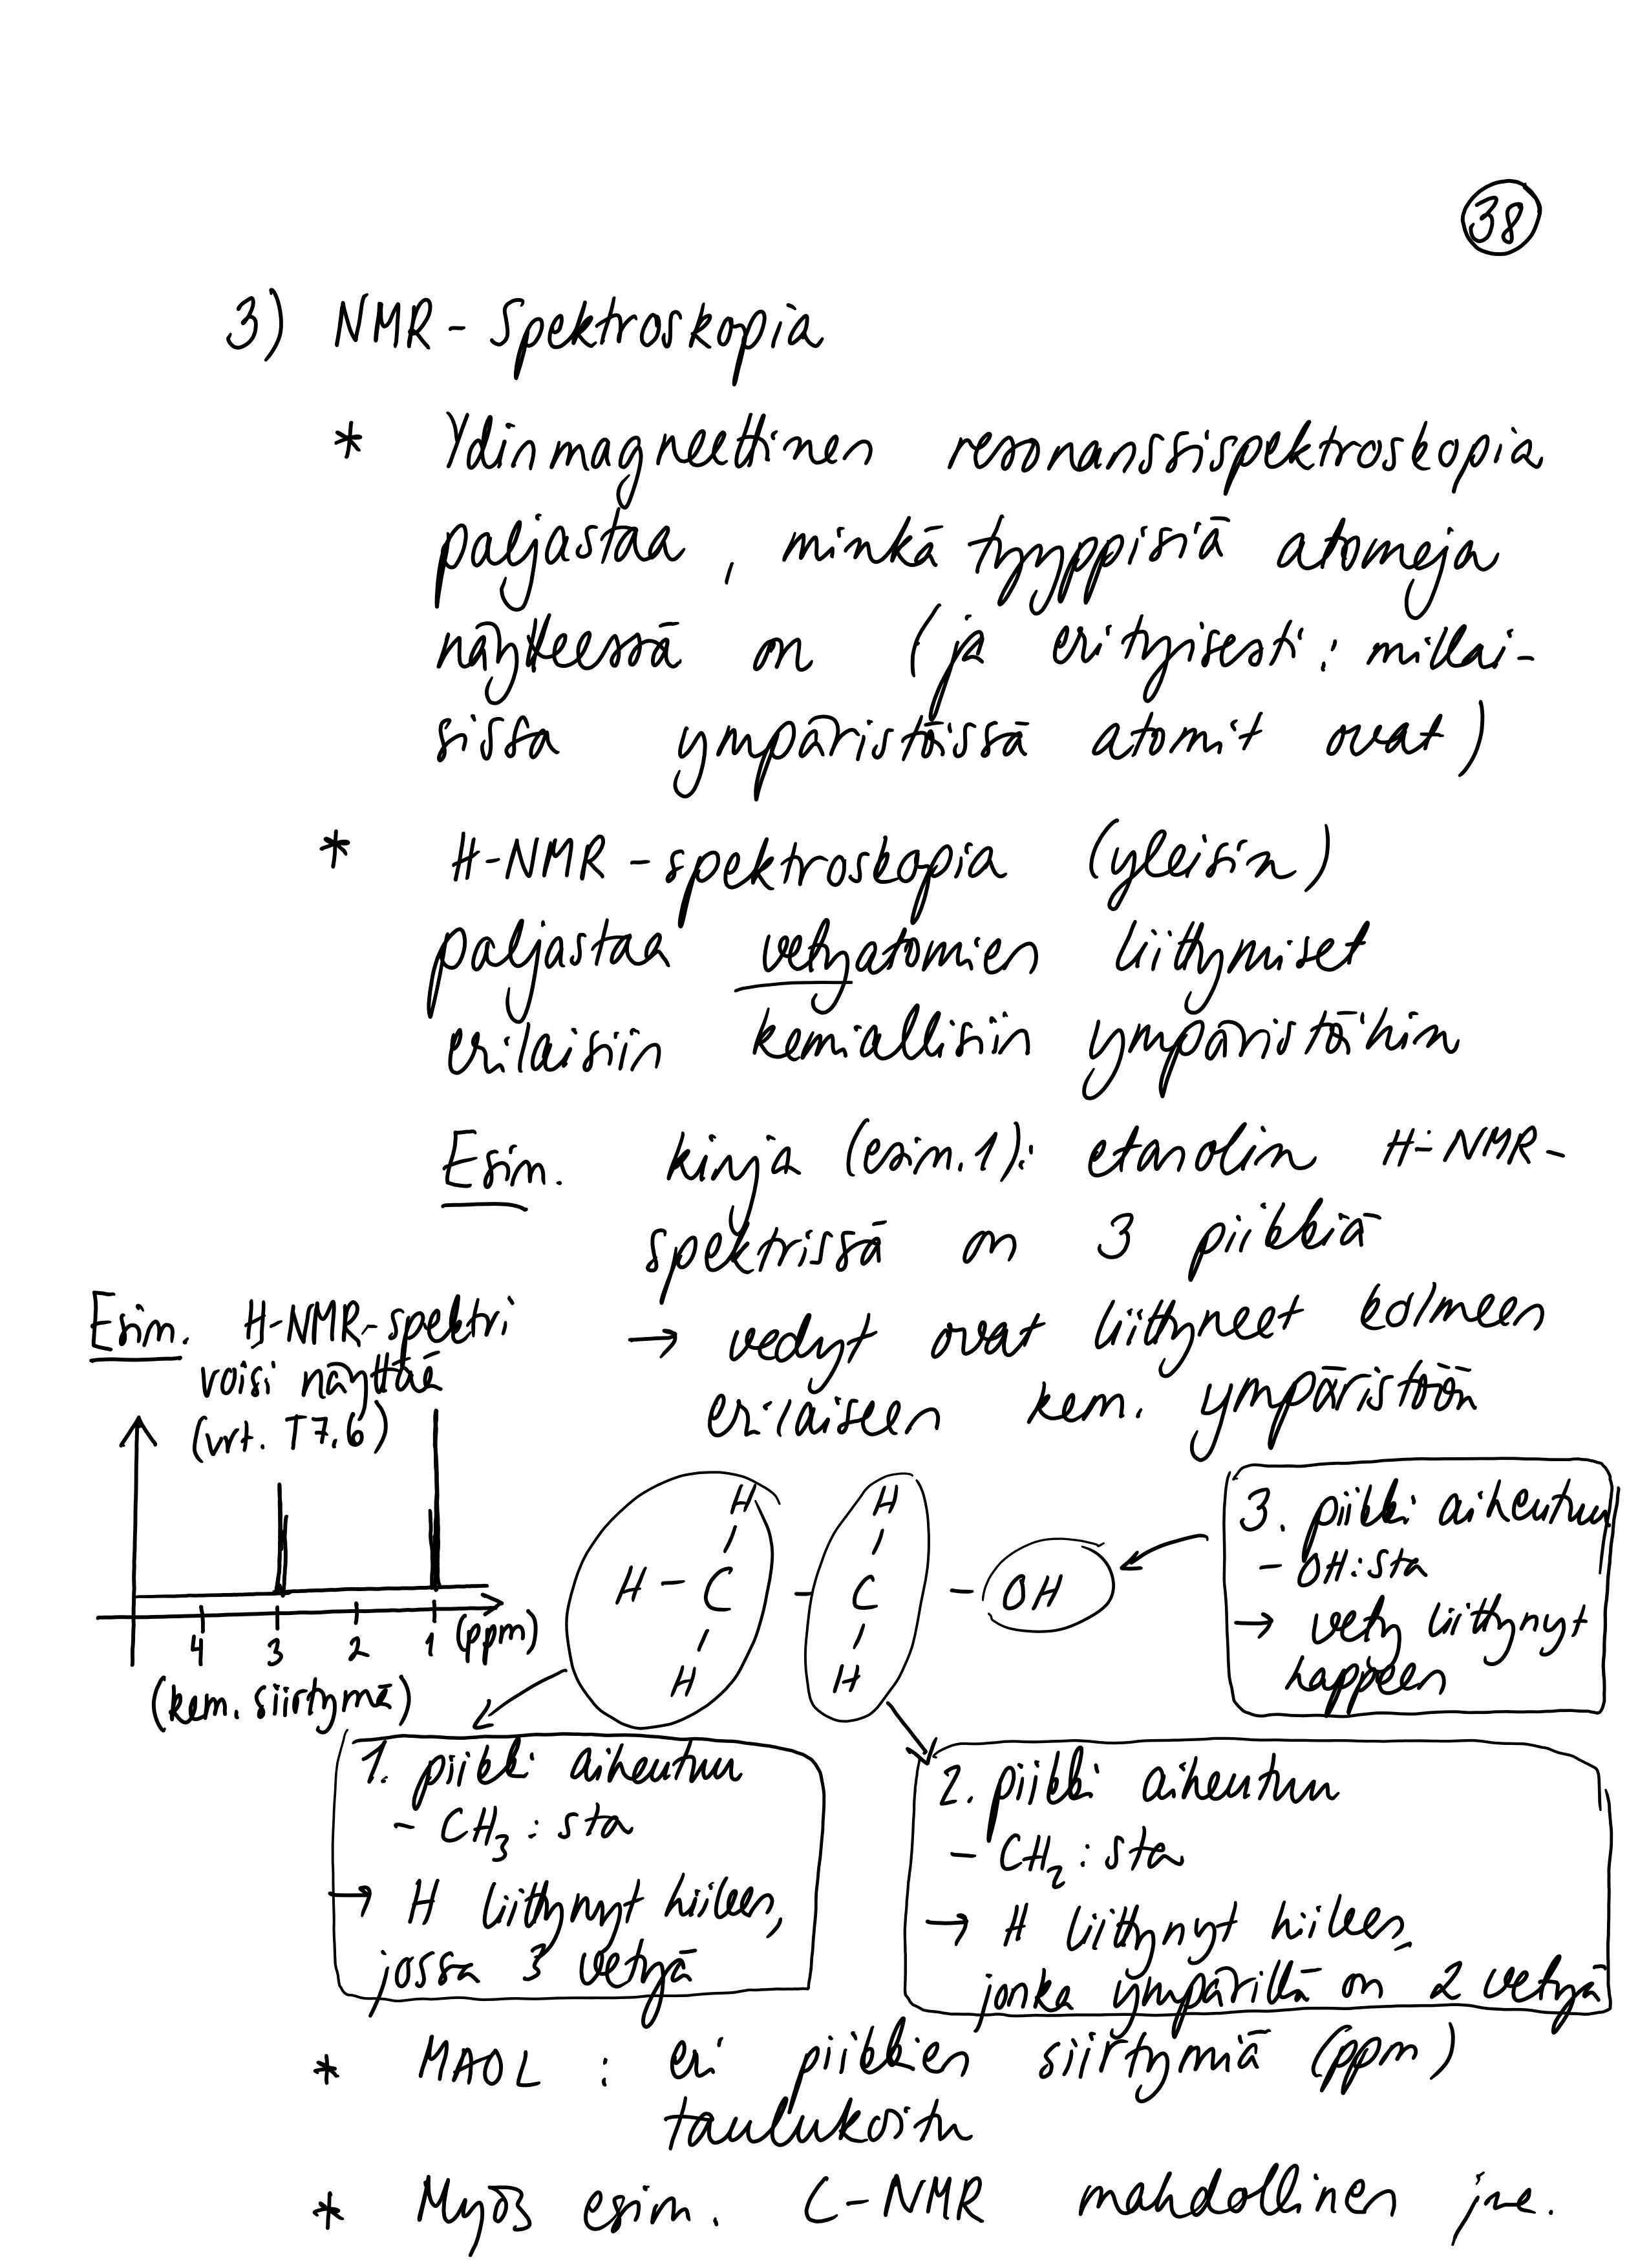 38
3) NMR - Spektroskopia
* Ydinmagneettinen resonanssispektroskopia
paljastaa, minkä tyyppisiä atomeja
näytteessä on (ja erityisesti: millai-
sissa ympäristöissä atomit ovat)
* H-NMR-spektroskopia (yleisin)
paljastaa vetyatomien liittymiset
erilaisiin kemiallisiin ympäristöihin
Esim. kirja (esim. 1): etanolin H-NMR-
spektrissä on 3 piikkiä
→ vedyt ovat liittyneet kolmeen
erilaiseen kem. ympäristöön
Esim. H-NMR-spektri
voisi näyttää
(vrt. T7.6)
4 3 2 1 (ppm)
(kem. siirtymä)
H H
H - C - C - OH
H H
3. piikki aiheutuu
- OH:sta
→ vety liittynyt
happeen
1. piikki aiheutuu
- CH₃:sta
→ H liittynyt hiileen,
jossa 3 vetyä
2. piikki aiheutuu
- CH₂:sta
→ H liittynyt hiileen,
jonka ympärillä on 2 vetyä
* MAOL : eri piikkien siirtymiä (ppm)
taulukoitu
* Myös esim. C-NMR mahdollinen jne.